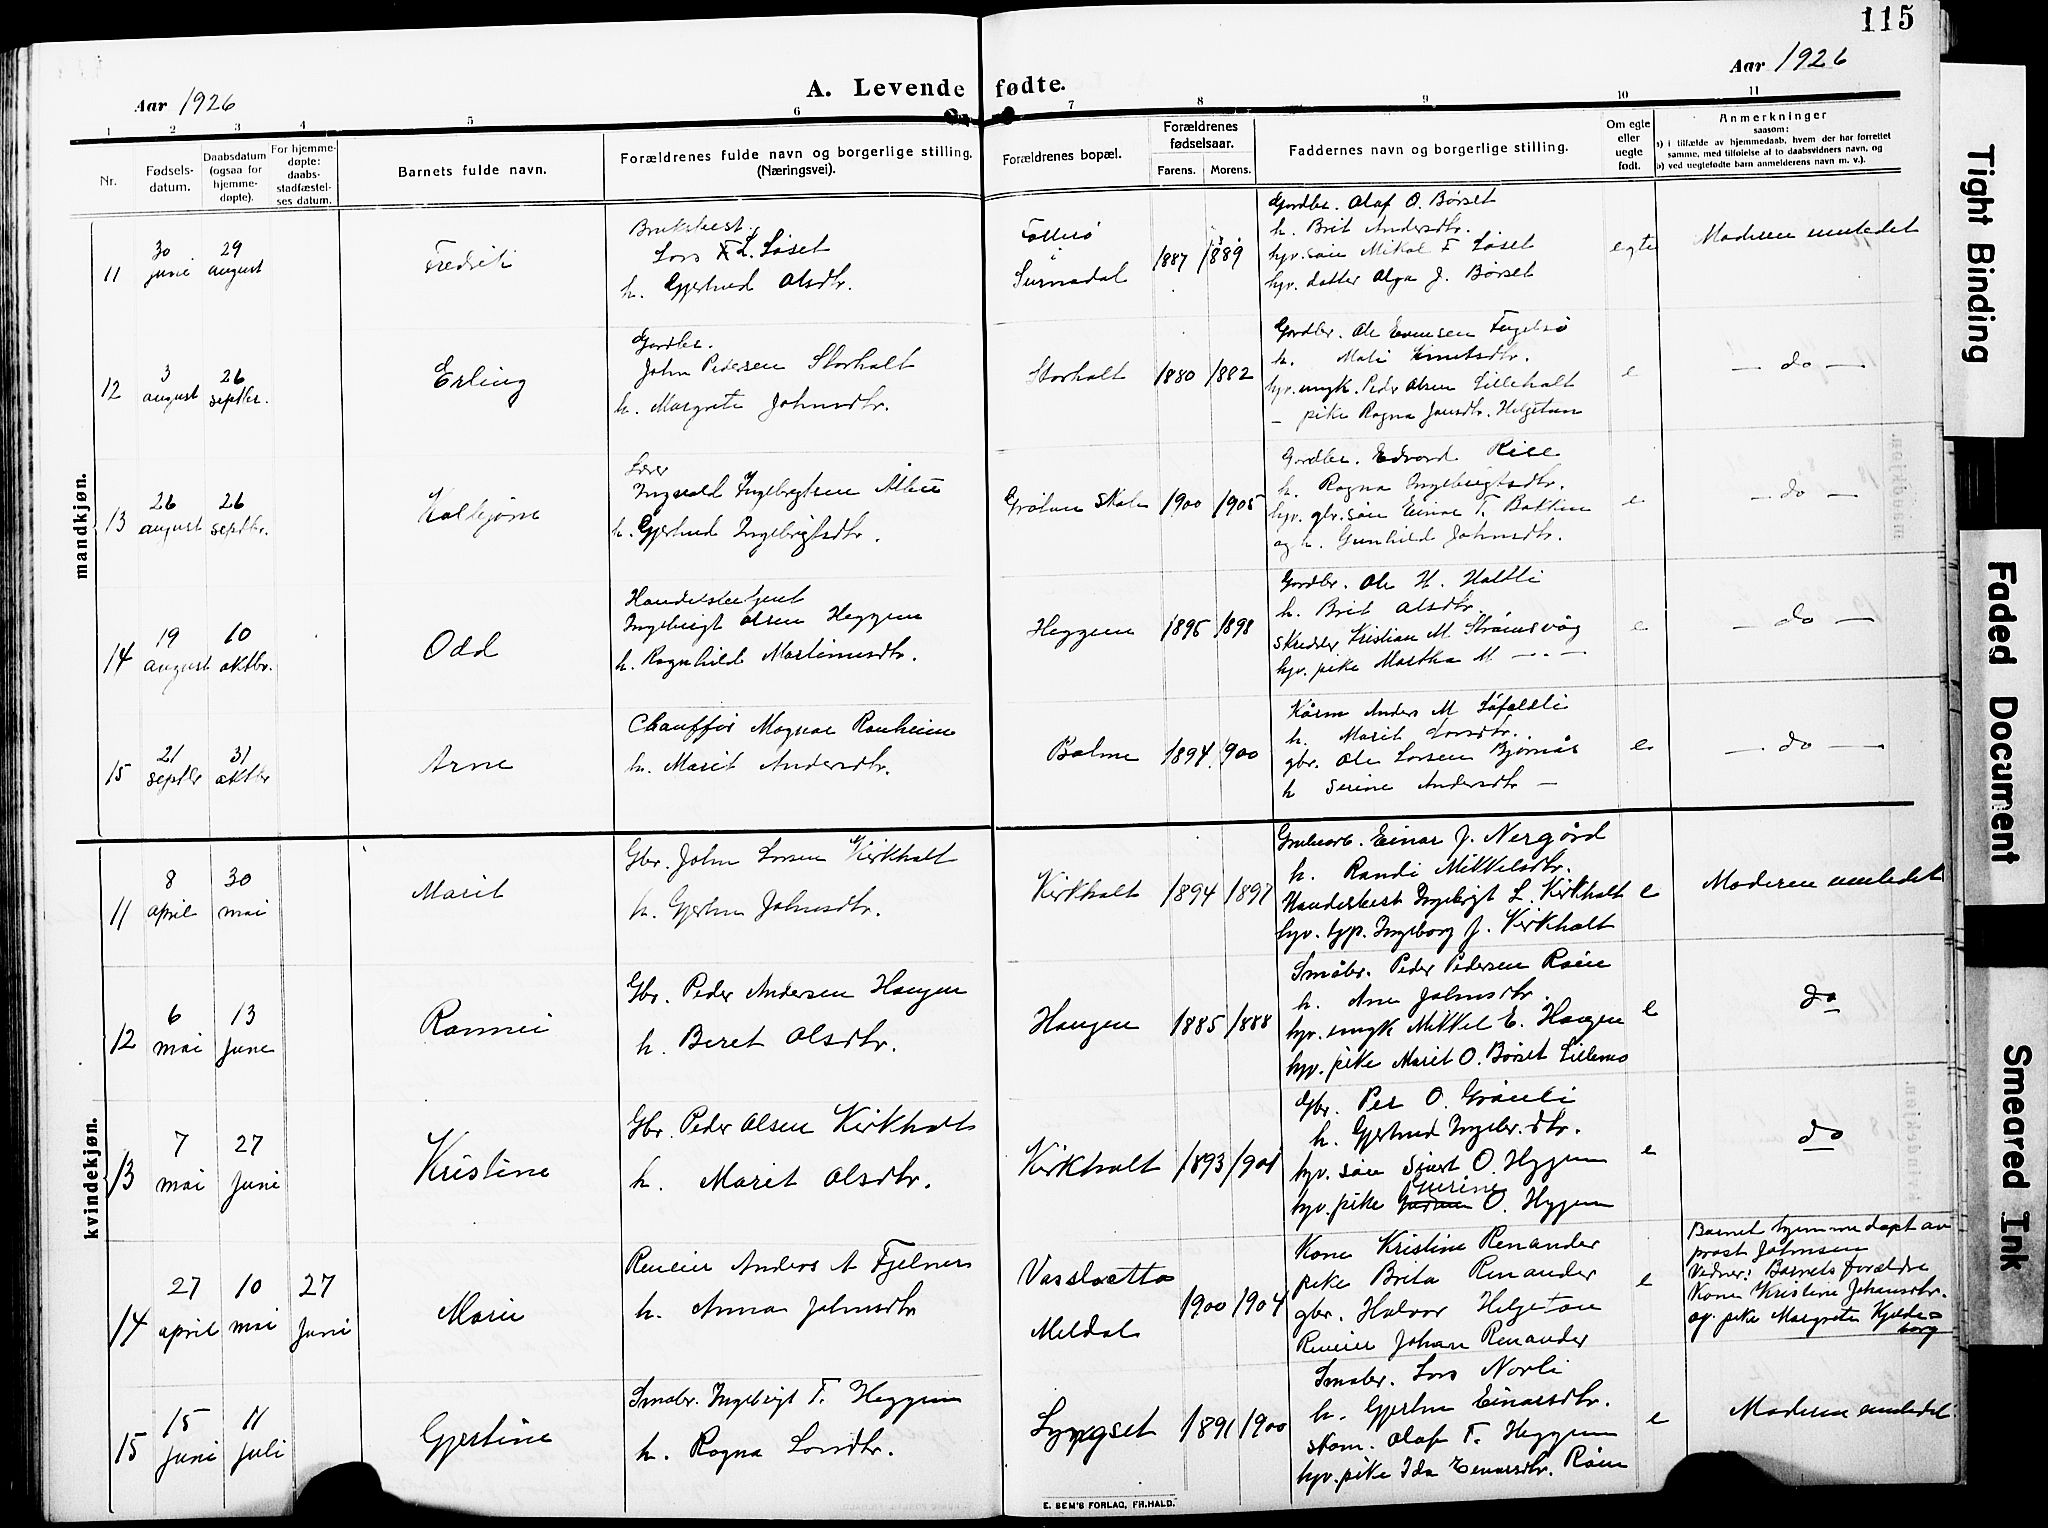 115
Aar 1926
A. Levende fødte.
Aar 1926
1 2 3 4 5 6 7 8 9 10 11
Nr.
Fødsels-
datum.
Daabsdatum
(ogsaa for
hjemme-
døpte).
For hjemme-
døpte:
daabs-
stadfæstel-
ses datum.
Barnets fulde navn.
Forældrenes fulde navn og borgerlige stilling.
(Næringsvei).
Forældrenes bopæl.
Forældrenes
fødselsaar.
Farens. Morens.
Faddernes navn og borgerlige stilling.
Om egte
eller
uegte
født.
Anmerkninger
saasom:
a) i tilfælde av hjemmedaab, hvem der har forrettet
samme, med tilføielse af to daabsvidners navn, og
b) ved uegtefødte barn anmelderens navn m. v.).
mandkjøn.
11
30 juni
29 august
Fredrik
Lars L. Løset
h. Gjertrud Olsdtr.
Surnadal
1887 1889
Gardbr. Olaf O. Børset
h. Brit Andersdtr.
hjv. søn Mikal F Løset
hjv. datter Olga J. Børset
egte
Moderen innledet
12
3 august
26 septbr.
Erling
Gardbr.
John Pedersen Storholt
h. Margrete Johnsdtr.
Storholt
1880 1882
Gardbr. Ole Evensen
h. Mali Knutsdtr.
hjv. ungk. Peder Olsen Lilleholt
— pike Ragna Jonsdtr. Helgetun
e
— do —
13
26 august
26 septbr.
Kolbjørn
Lærer
Ingvald Ingebrigtsen
h. Gjertrud Ingebrigtsdtr.
1900 1905
Gardbr. Edvard
h. Ragna Ingebrigtsdtr.
hjv. gbr. søn Einar T.
og h. Gunhild Johnsdtr.
e
— do —
14
19 august
10 oktbr.
Odd
Handelsbetjent
Ingebrigt Olsen Heggem
h. Ragnhild Martinusdtr.
Heggem
1896 1898
Gardbr. Ole H. Holtli
h. Brit Olsdtr.
Skredder Kristian M. Strømsvåg
hjv. pike Martha M — " —
e
— do —
15
21 septbr
31 oktbr
Arne
Chauffør Magnar Ranheim
h. Marit Andersdtr.
Bolme
1894 1900
Anders M
h. Marit Larsdtr.
gbr. Ole Larsen Bjørnås
h Serine Andersdtr —
e
— do —
kvindekjøn.
11
8 april
30 mai
Marit
Gbr. John Larsen Kirkholt
h. Gjertru Johnsdtr.
Kirkholt
1894 1897
Einar J. Nergård
h. Randi Mikkelsdtr.
Handelsbest Ingebrigt L. Kirkholt
hjv. Ingeborg J. Kirkholt
e
Moderen innledet
12
6 mai
13 June
Rannei
Gbr. Peder Andersen Haugen
h. Beret Olsdtr.
Haugen
1885 1888
Småbr. Peder Pedersen Røen
h. Ane Johnsdtr.
hjv. ungk Mikkel E. Haugen
hjv. pike Marit O. Børset Lillemo
e
do
13
7 mai
27 Juni
Kristine
Gbr. Peder Olsen Kirkholt
h. Marit Olsdtr.
Kirkholt
1893 1901
Gbr. Per O. Grønli
h. Gjertrud Ingebr. dtr.
hjv. søn Sivert O. Heggem
hjv. pike Gurine O. Heggem
e
do
14
27 april
10 mai
27 Juni
Marie
Reneier Anders A Fjellner
h. Anna Johnsdtr
Meldal
1900 1904
Kone Kristine Renander
pike Brita Renander
gbr. Halvar Helgetun
Reneier Johan Renander
e
Barnet hjemmedøpt av
prost Johnsen
Vidner: Barnets forældre
Kone Kristine Johansdtr.
og pike Margrete Kjelds-
borg
15
15 Juni
11 Juli
Gjertine
Småbr. Ingebrigt T. Heggem
h. Ragna Larsdtr.
Lyngset
1891 1900
Småbr. Lars Norli
h. Gjertru Einarsdtr.
skom. Olaf T. Heggem
hjv. pike Ida Einarsdtr. Røen
e
Moderen innledet
E. SEM'S FORLAG, FR.HALD.
Tight Binding
Faded Document
Smeared Ink